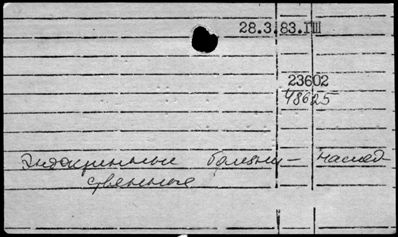 28.3.83.ГІІІ
23602
48625
Эндокринные болезни – наслед
ственные